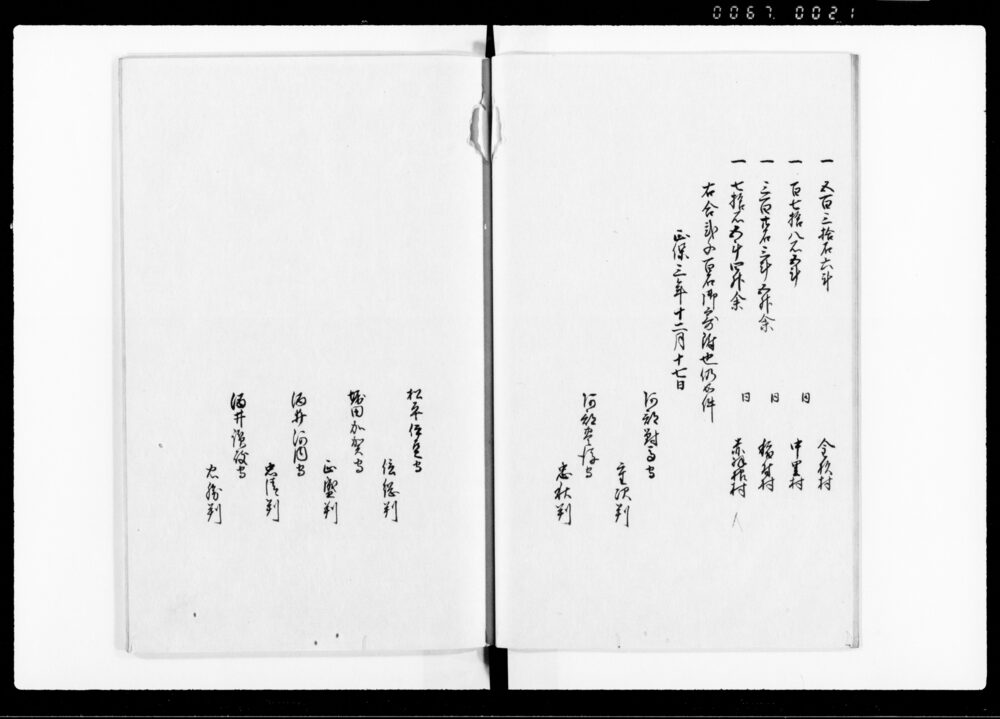 0067 0021
一 五百三拾石六斗 今杉村
一 百七拾八石五斗 同 中里村
一 三百廿石三斗五升余 同 稲付村
一 七拾石五斗四升余 同 赤羽根村
右合千百石御寄附也仍如件
正保三年十二月十七日
阿部対馬守
重次判
阿部豊後守
忠秋判
松平伊豆守
信綱判
堀田加賀守
正盛判
酒井河内守
忠清判
酒井讃岐守
忠勝判